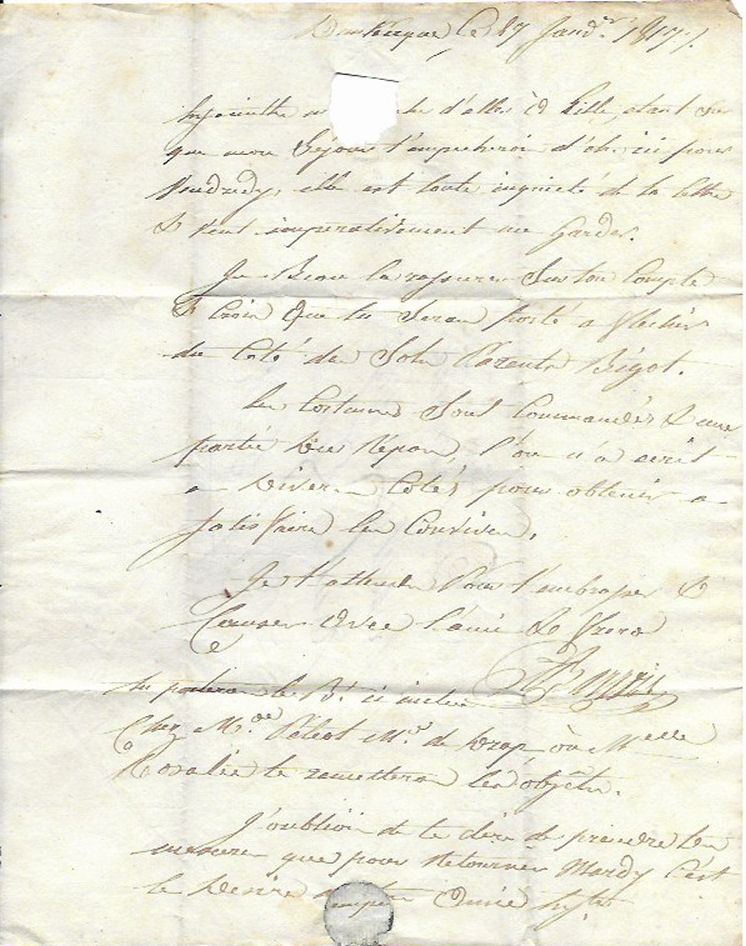 Dunkerque le 17 Janv.r 1817 /.
hyacinthe d'aller à Lille, etant sur
que mon Séjour t'empecheroi d'etre ici pour
Vendredy, elle est toute inquiete de ta lettre
& veut imperativement me Garder.
Je Beau la rassurer Sur ton Compte
& Croir que tu Seran porté a flechir
du Coté de Parents Bigot.
Len Costumes Sont Commandés & une
partie l'on n'a ecrit
a Divern Cotés pour obtenir a
Satisfaire len Conviven.
Je t'attend Pour t'embrasser &
Causer avec l'ami & frere
tu porteran le B.t ci inclu
Chez M.de M.d de Drap où M.elle
Rosalie te remetteran len objêtn.
J'oublioi de te dire de prendre ten
mesuren que pour Retourner Mardy C'est
le Desire Amie